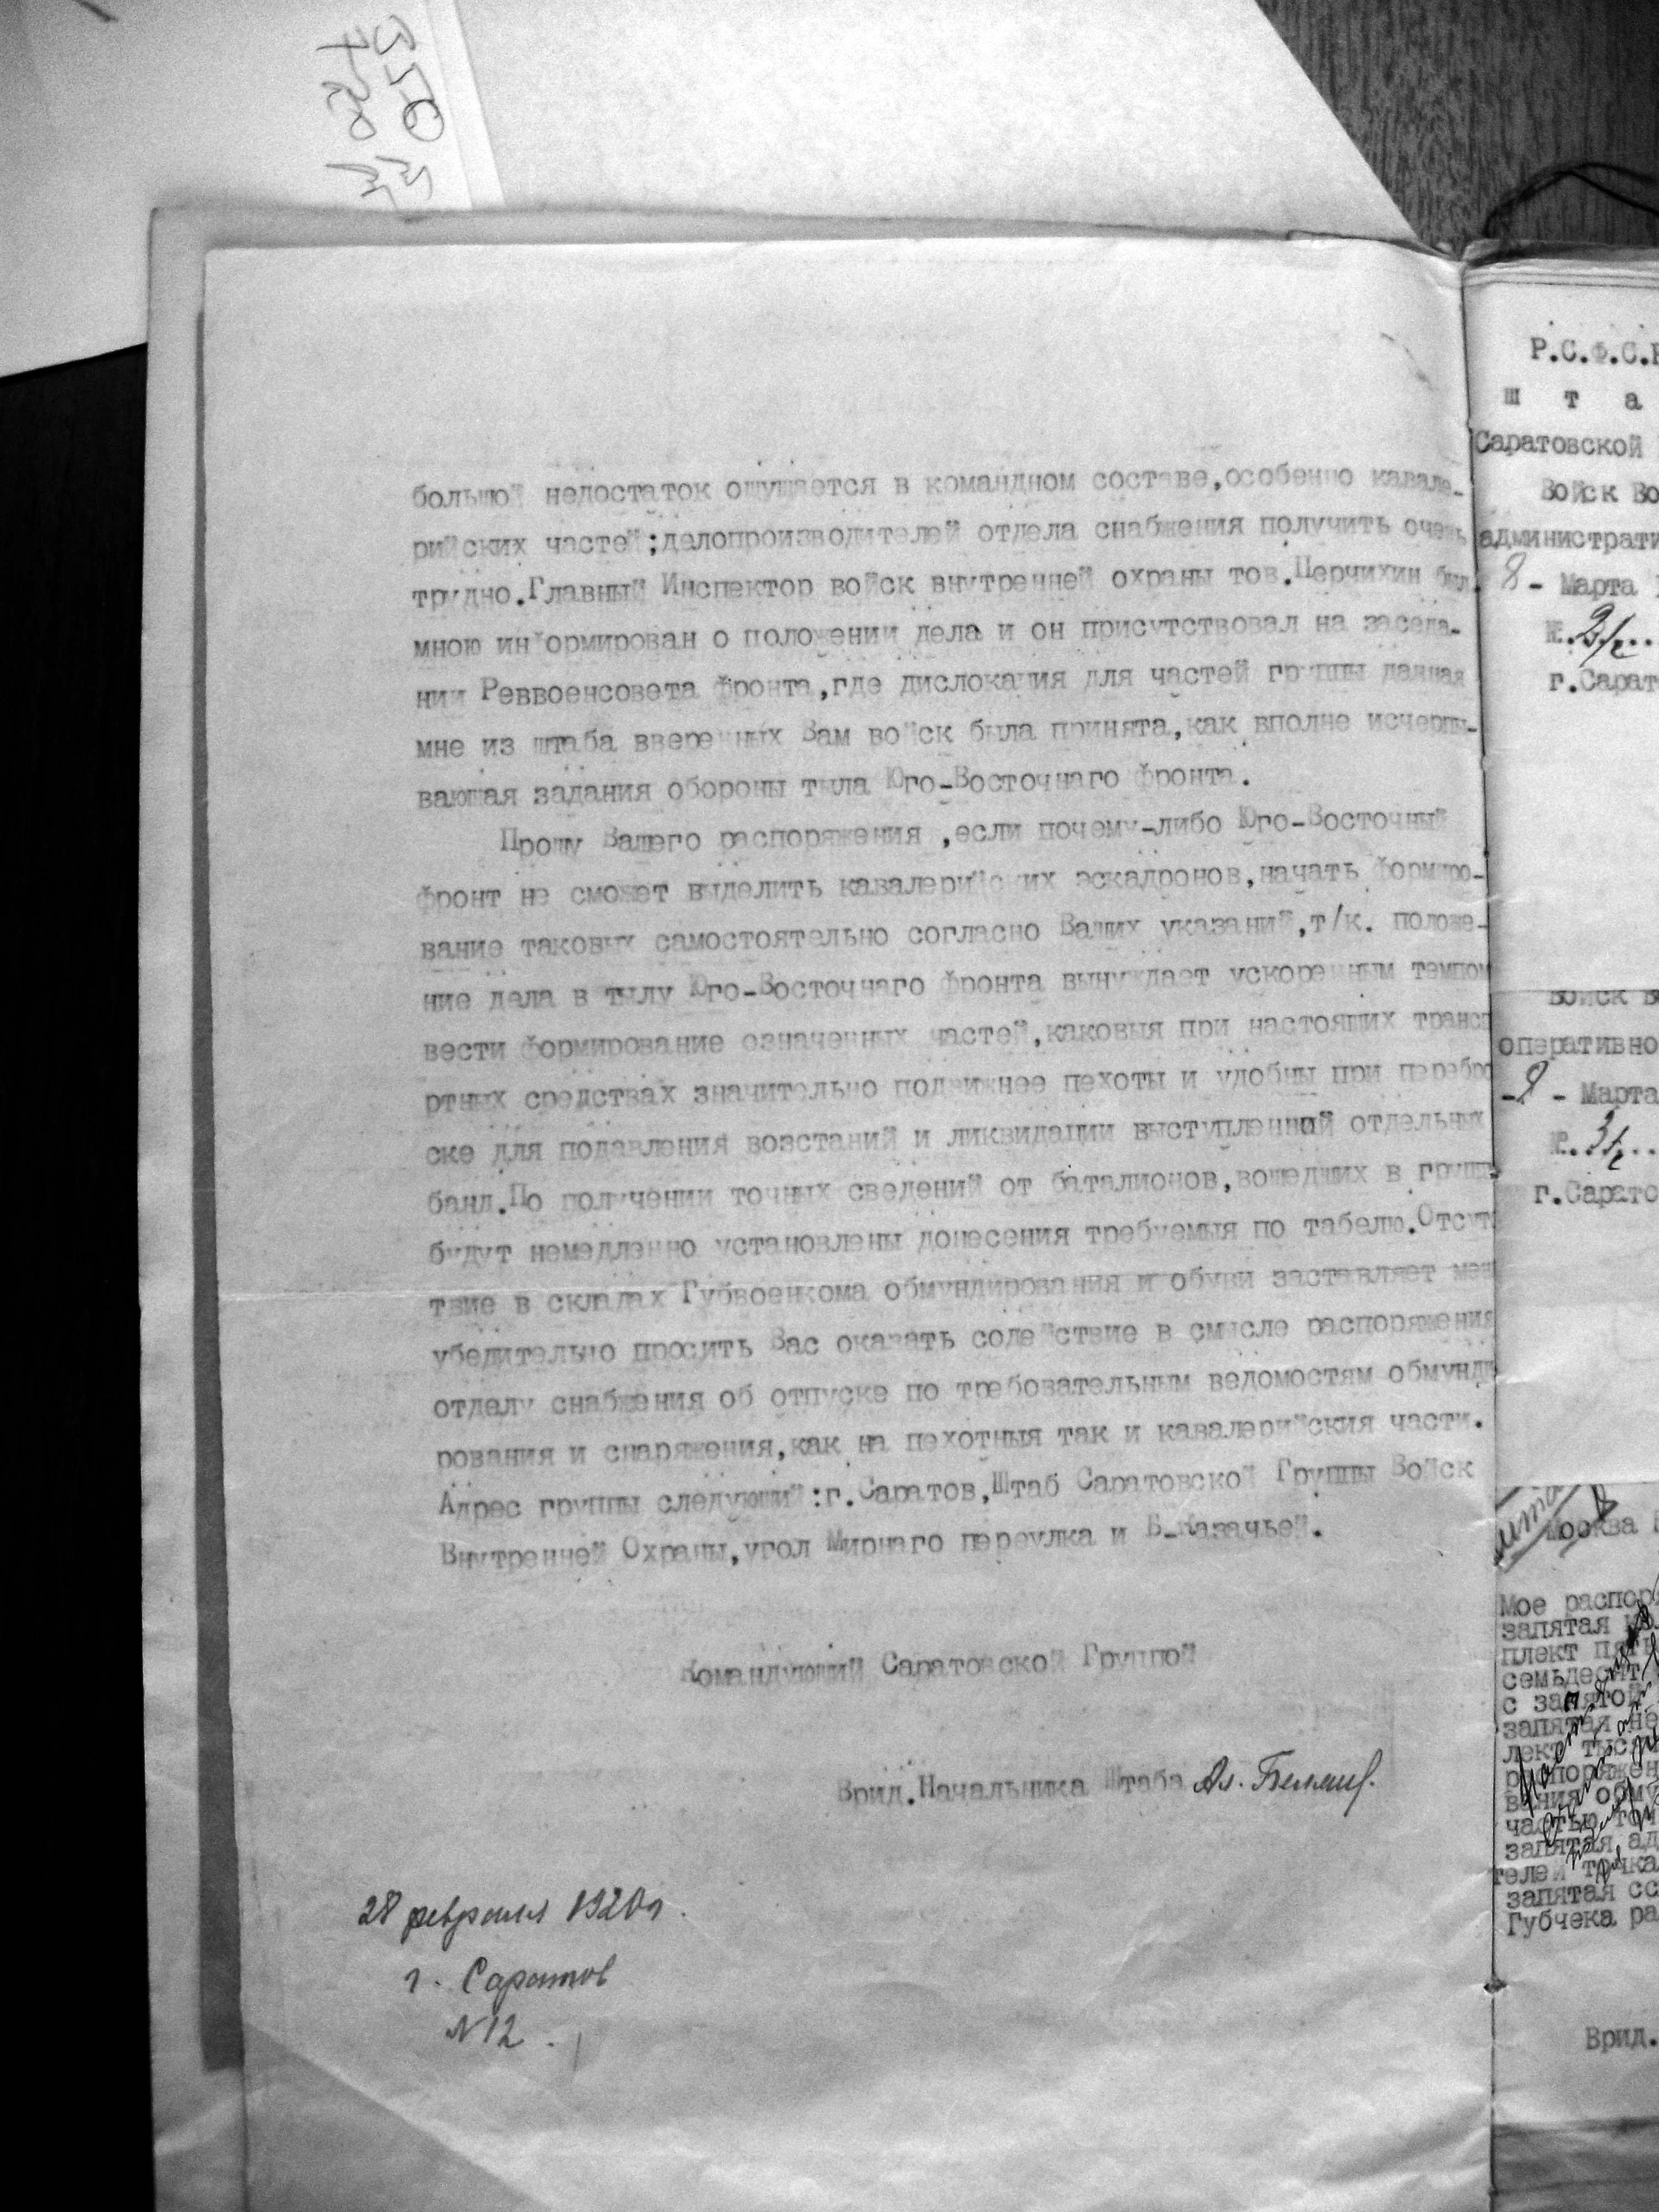 большой недостаток ощущается в командном составе,особенно кавале-
рийских частей;делопроизводителей отдела снабжения получить очень
трудно.Главный Инспектор войск внутренней охраны тов.Перчихин был
мною информирован о положении дела и он присутствовал на заседа-
нии Реввоенсовета фронта,где дислокация для частей группы данная
мне из штаба вверенных Вам войск была принята,как вполне исчерпы-
вающая задания обороны тыла Юго-Восточнаго фронта.
Прошу Вашего распоряжения ,если почему-либо Юго-Восточный
фронт не сможет выделить кавалерийских эскадронов,начать формиро-
вание таковых самостоятельно согласно Ваших указаний,т/к. положе-
ние дела в тылу Юго-Восточнаго фронта вынуждает ускоренным темпом
вести формирование означенных частей,каковыя при настоящих трансп
ртных средствах значительно подвижнее пехоты и удобны при перебро
ске для подавления возстаний и ликвидации выступлений отдельных
банд.По получении точных сведений от баталионов,вошедших в групп
будут немедленно установлены донесения требуемыя по табелю.Отсут
твие в складах Губвоенкома обмундирования и обуви заставляет мен
убедительно просить Вас оказать содействие в смысле распоряжения
отделу снабжения об отпуске по требовательным ведомостям обмунди
рования и снаряжения,как на пехотныя так и кавалерийския части.
Адрес группы следующий:г.Саратов,Штаб Саратовской Группы Войск
Внутренней Охраны,угол Мирнаго переулка и Б-Казачьей.
Командующий Саратовской Группой
Врид.Начальника Штаба Ал.
28 февраля 1920 г.
г. Саратов
N 12.
Р.С.Ф.С.Р
Ш т а
Саратовской
Войск Во
административ
8 - Марта
г.Сарат
Войск В
оперативно
- Марта
г.Сарато
Москва
Мое распор
запятая
плект пять
семьдесят
с запятой
запятая не
лект тыся
распоряжен
вания обму
частью точ
запятая ад
телей точка
запятая сс
Губчека ра
Врид.